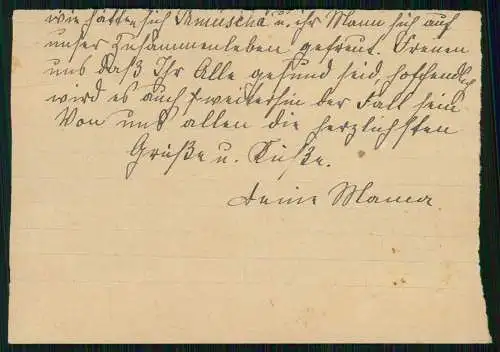 wie hätten sich Amuscha u. ihr Mann sich auf
unser Zusammenleben gefreut. Freuen
uns daß Ihr Alle gesund seid, hoffendlich
wird es auch f. weiterhin der Fall sein
Von uns allen die herzlichsten
Grüße u. Küße.
Deine Mama